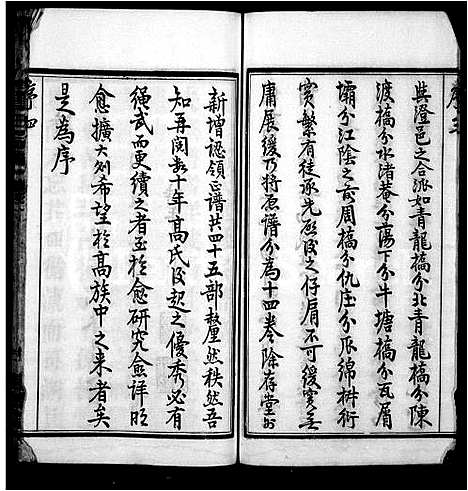 與澄邑之合派如青龍橋分北青龍橋分陳
渡橋分水渚菴分蕩下分牛塘橋分瓦屑
壩分江陰之前周橋分仇庄分瓜綿椒衍
實繁有徒承先啟後之仔肩不可緩實無
庸展緩乃將原譜分為十四卷除存堂外
新增認領正譜共四十五部釐然秩然吾
知再閱數十年高氏後起之優秀必有
繩武而更續之者至於愈研究愈詳明
愈擴大則希望於高族中之來者矣
是為序
序四